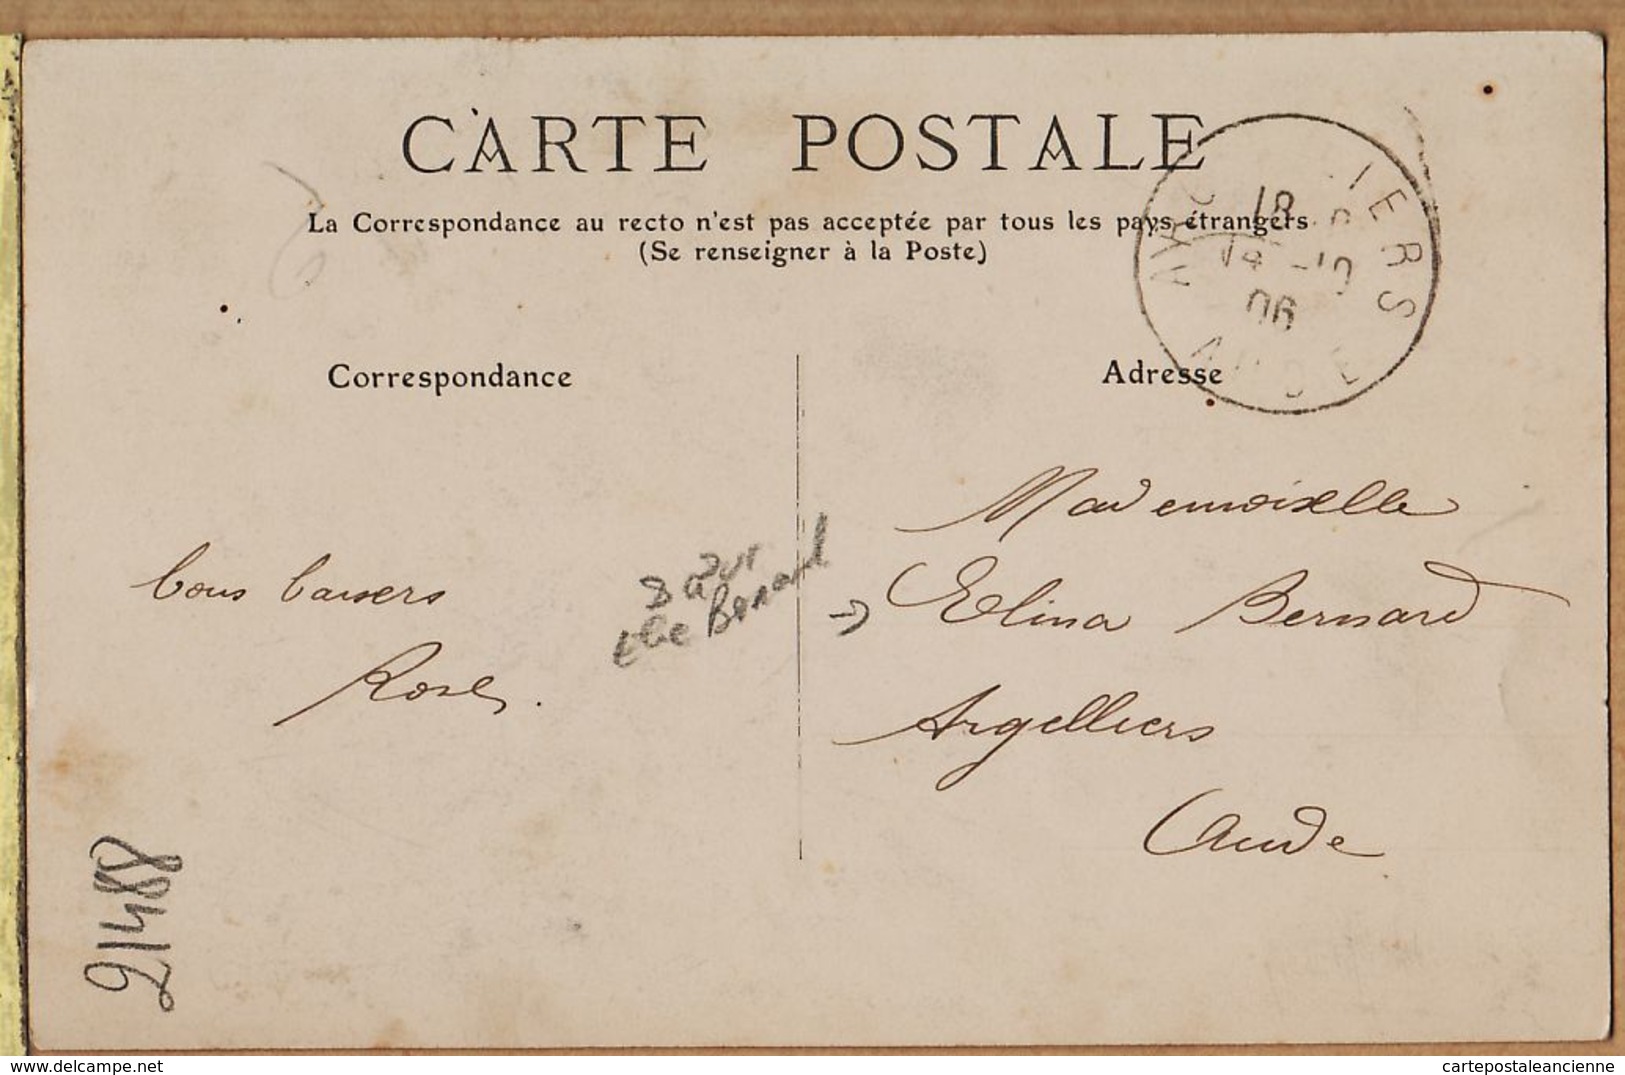 CARTE POSTALE
La Correspondance au recto n'est pas acceptée par tous les pays étrangers
(Se renseigner à la Poste)
IERS
AUDE
Correspondance
Adresse
bons baisers
Rose.
Bernard
Mademoiselle
Elina Bernard
Argelliers
Aude
21488
delcampe.net
cartepostaleancienne